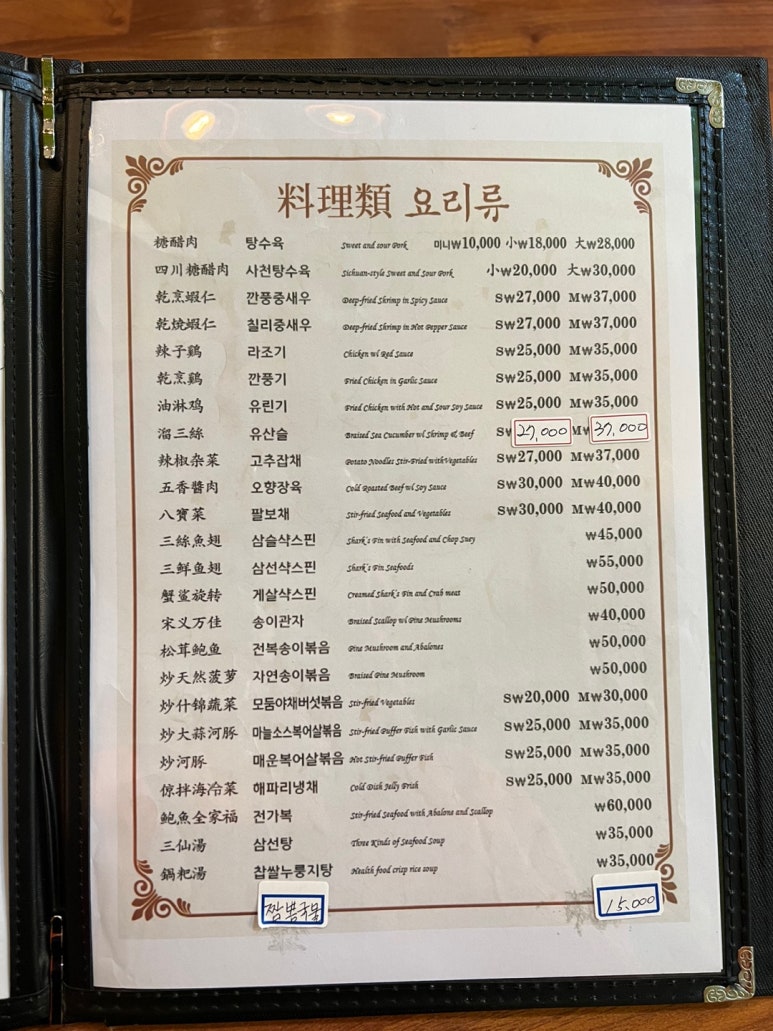 料理類 요리류
糖醋肉 탕수육 Sweet and sour Pork 미니₩10,000 小₩18,000 大₩28,000
四川糖醋肉 사천탕수육 Sichuan-style Sweet and Sour Pork 小₩20,000 大₩30,000
乾烹蝦仁 깐풍중새우 Deep-fried Shrimp in Spicy Sauce S₩27,000 M₩37,000
乾燒蝦仁 칠리중새우 Deep-fried Shrimp in Hot Pepper Sauce S₩27,000 M₩37,000
辣子鷄 라조기 Chicken w/ Red Sauce S₩25,000 M₩35,000
乾烹鷄 깐풍기 Fried Chicken in Garlic Sauce S₩25,000 M₩35,000
油淋鸡 유린기 Fried Chicken with Hot and Sour Soy Sauce S₩25,000 M₩35,000
溜三絲 유산슬 Braised Sea Cucumber w/ Shrimp & Beef S₩27,000 M₩37,000
辣椒杂菜 고추잡채 Potato Noodles Stir-Fried with Vegetables S₩27,000 M₩37,000
五香醬肉 오향장육 Cold Roasted Beef w/ Soy Sauce S₩30,000 M₩40,000
八寶菜 팔보채 Stir-fried Seafood and Vegetables S₩30,000 M₩40,000
三絲魚翅 삼슬샥스핀 Shark's Fin with Seafood and Chop Suey ₩45,000
三鲜鱼翅 삼선샥스핀 Shark's Fin Seafoods ₩55,000
蟹鲨旋转 게살샥스핀 Creamed Shark's Fin and Crab meat ₩50,000
宋义万佳 송이관자 Braised Scallop w/ Pine Mushrooms ₩40,000
松茸鲍鱼 전복송이볶음 Pine Mushroom and Abalones ₩50,000
炒天然菠萝 자연송이볶음 Braised Pine Mushroom ₩50,000
炒什錦蔬菜 모둠야채버섯볶음 Stir-fried Vegetables S₩20,000 M₩30,000
炒大蒜河豚 마늘소스복어살볶음 Stir-fried Puffer Fish with Garlic Sauce S₩25,000 M₩35,000
炒河豚 매운복어살볶음 Hot Stir-fried Puffer Fish S₩25,000 M₩35,000
倞拌海冷菜 해파리냉채 Cold Dish Jelly Frish S₩25,000 M₩35,000
鮑魚全家福 전가복 Stir-fried Seafood with Abalone and Scallop ₩60,000
三仙湯 삼선탕 Three Kinds of Seafood Soup ₩35,000
鍋粑湯 찹쌀누룽지탕 Health food crisp rice soup ₩35,000
짬뽕국물 15,000